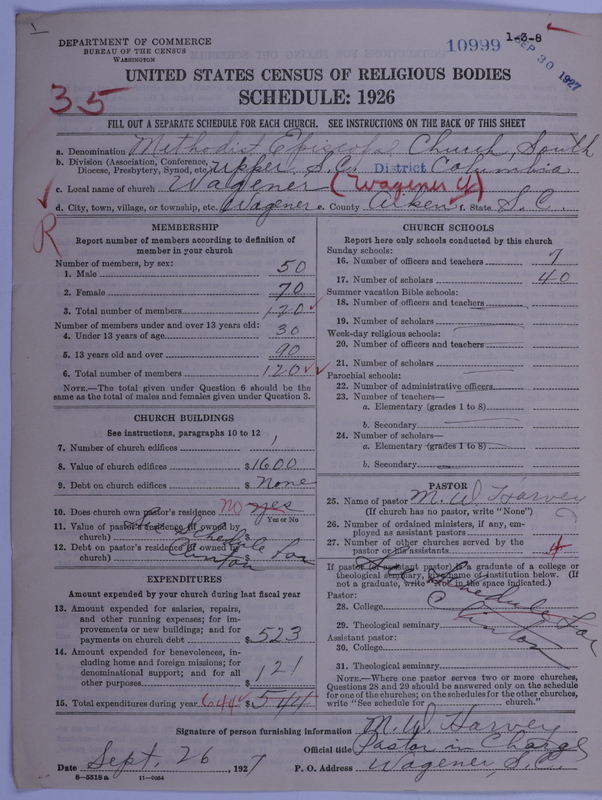 1-3-8
DEPARTMENT OF COMMERCE
BUREAU OF THE CENSUS
WASHINGTON
10999
SEP 30 1927
UNITED STATES CENSUS OF RELIGIOUS BODIES
SCHEDULE: 1926
35
FILL OUT A SEPARATE SCHEDULE FOR EACH CHURCH. SEE INSTRUCTIONS ON THE BACK OF THIS SHEET
a. Denomination Methodist Episcopal Church, South
b. Division (Association, Conference, Diocese, Presbytery, Synod, etc. Upper S.C. District Columbia
c. Local name of church Wagener (Wagener 4)
d. City, town, village, or township, etc. Wagener e. County Aiken f. State S.C.
R
MEMBERSHIP
Report number of members according to definition of
member in your church
Number of members, by sex:
1. Male 50
2. Female 70
3. Total number of members 120
Number of members under and over 13 years old:
4. Under 13 years of age 30
5. 13 years old and over 90
6. Total number of members 120
NOTE.—The total given under Question 6 should be the
same as the total of males and females given under Question 3.
CHURCH BUILDINGS
See instructions, paragraphs 10 to 12
7. Number of church edifices 1
8. Value of church edifices $1600
9. Debt on church edifices $ None
10. Does church own pastor's residence no yes
Yes or No
11. Value of pastor's residence (if owned by
church) $
12. Debt on pastor's residence (if owned by
church) $
See Schedule for
Clinton
EXPENDITURES
Amount expended by your church during last fiscal year
13. Amount expended for salaries, repairs,
and other running expenses; for im-
provements or new buildings; and for
payments on church debt $523
14. Amount expended for benevolences, in-
cluding home and foreign missions; for
denominational support; and for all
other purposes $121
15. Total expenditures during year 644 $544
CHURCH SCHOOLS
Report here only schools conducted by this church
Sunday schools:
16. Number of officers and teachers 7
17. Number of scholars 40
Summer vacation Bible schools:
18. Number of officers and teachers
19. Number of scholars
Week-day religious schools:
20. Number of officers and teachers
21. Number of scholars
Parochial schools:
22. Number of administrative officers
23. Number of teachers—
a. Elementary (grades 1 to 8)
b. Secondary
24. Number of scholars—
a. Elementary (grades 1 to 8)
b. Secondary
PASTOR
25. Name of pastor M. W. Harvey
(If church has no pastor, write "None")
26. Number of ordained ministers, if any, em-
ployed as assistant pastors
27. Number of other churches served by the
pastor or his assistants 4
If pastor (or assistant pastor) is a graduate of a college or
theological seminary, give name of institution below. (If
not a graduate, write "No" in the space indicated.)
Pastor:
28. College
29. Theological seminary
See Schedule for
Clinton
Assistant pastor:
30. College
31. Theological seminary
NOTE.—Where one pastor serves two or more churches,
Questions 28 and 29 should be answered only on the schedule
for one of the churches; on the schedules for the other churches,
write "See schedule for church."
Signature of person furnishing information M. W. Harvey
Official title Pastor in Charge
Date Sept. 26, 1927 P. O. Address Wagener S.C.
6-5518a 11-9034